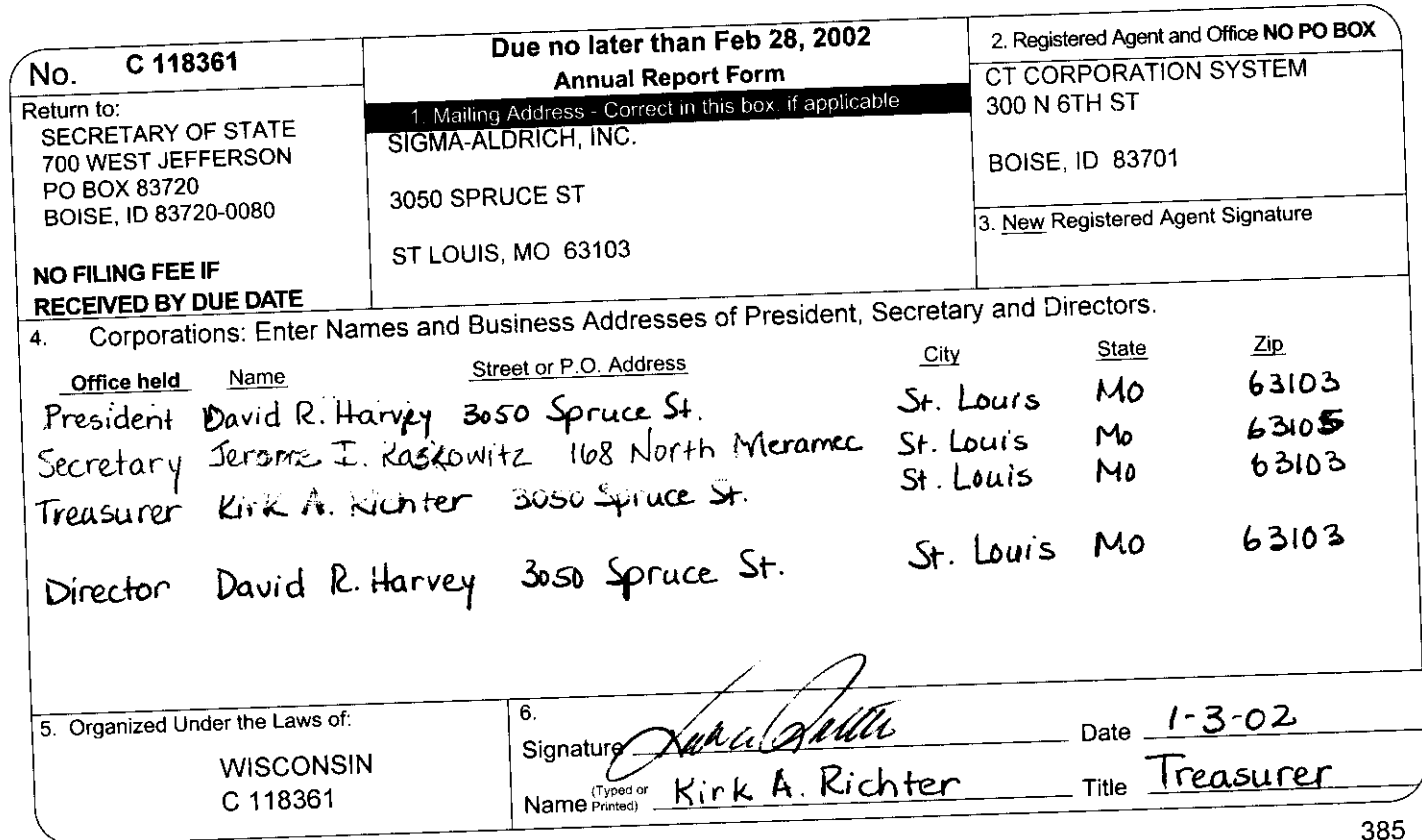 No. C 118361
Return to:
SECRETARY OF STATE
700 WEST JEFFERSON
PO BOX 83720
BOISE, ID 83720-0080
NO FILING FEE IF
RECEIVED BY DUE DATE
Due no later than Feb 28, 2002
Annual Report Form
1. Mailing Address - Correct in this box, if applicable
SIGMA-ALDRICH, INC.
3050 SPRUCE ST
ST LOUIS, MO 63103
2. Registered Agent and Office NO PO BOX
CT CORPORATION SYSTEM
300 N 6TH ST
BOISE, ID 83701
3. New Registered Agent Signature
4. Corporations: Enter Names and Business Addresses of President, Secretary and Directors.
Office held Name Street or P.O. Address City State Zip
President David R. Harvey 3050 Spruce St. St. Louis MO 63103
Secretary Jerome I. Kaskowitz 168 North Meramec St. Louis Mo 63105
Treasurer Kirk A. Richter 3050 Spruce St. St. Louis MO 63103
Director David R. Harvey 3050 Spruce St. St. Louis MO 63103
5. Organized Under the Laws of:
WISCONSIN
C 118361
6.
Signature Date 1-3-02
Name (Typed or Printed) Kirk A. Richter Title Treasurer
385